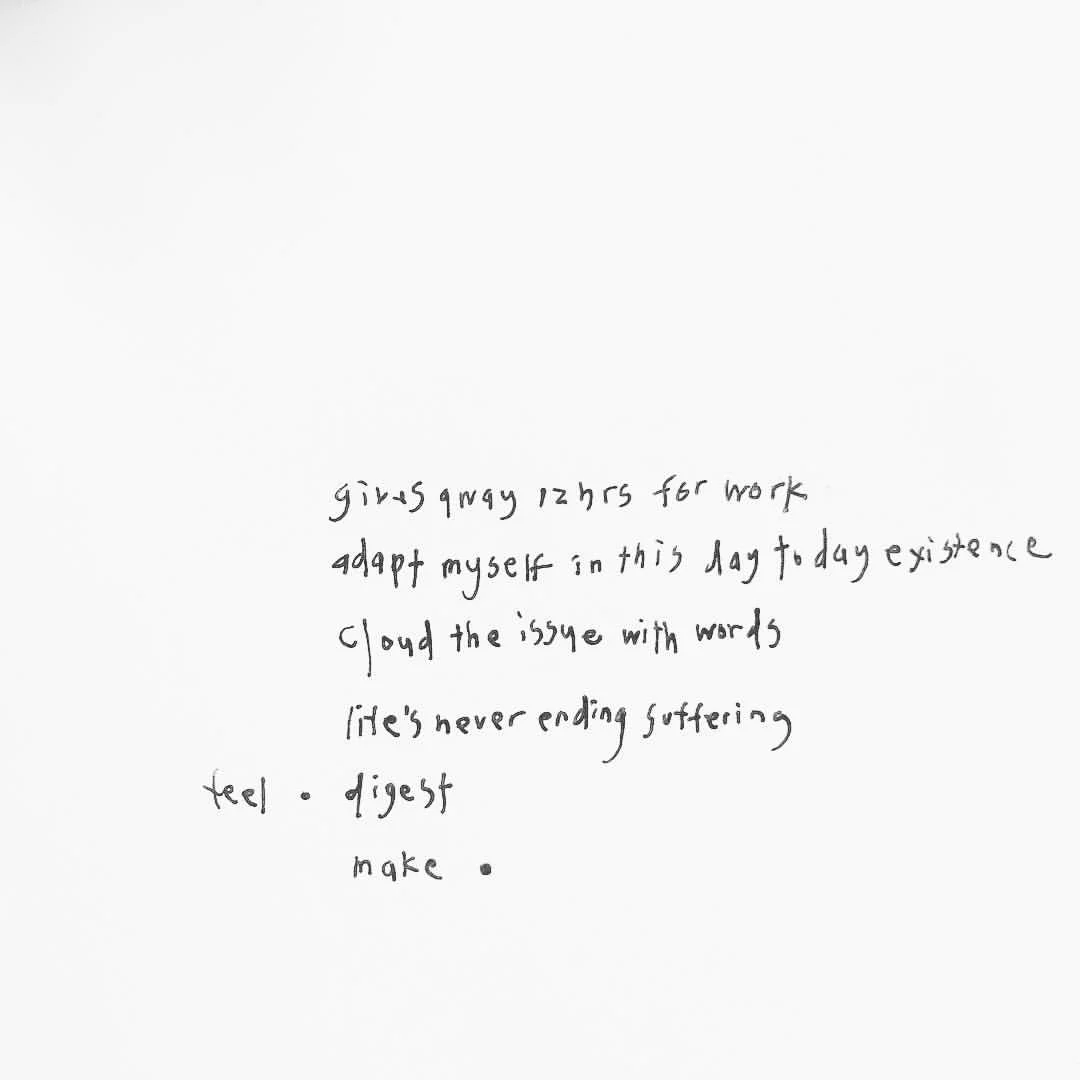 gives away 12hrs for work
adapt myself in this day to day existence
cloud the issue with words
life's never ending suffering
feel • digest
make •